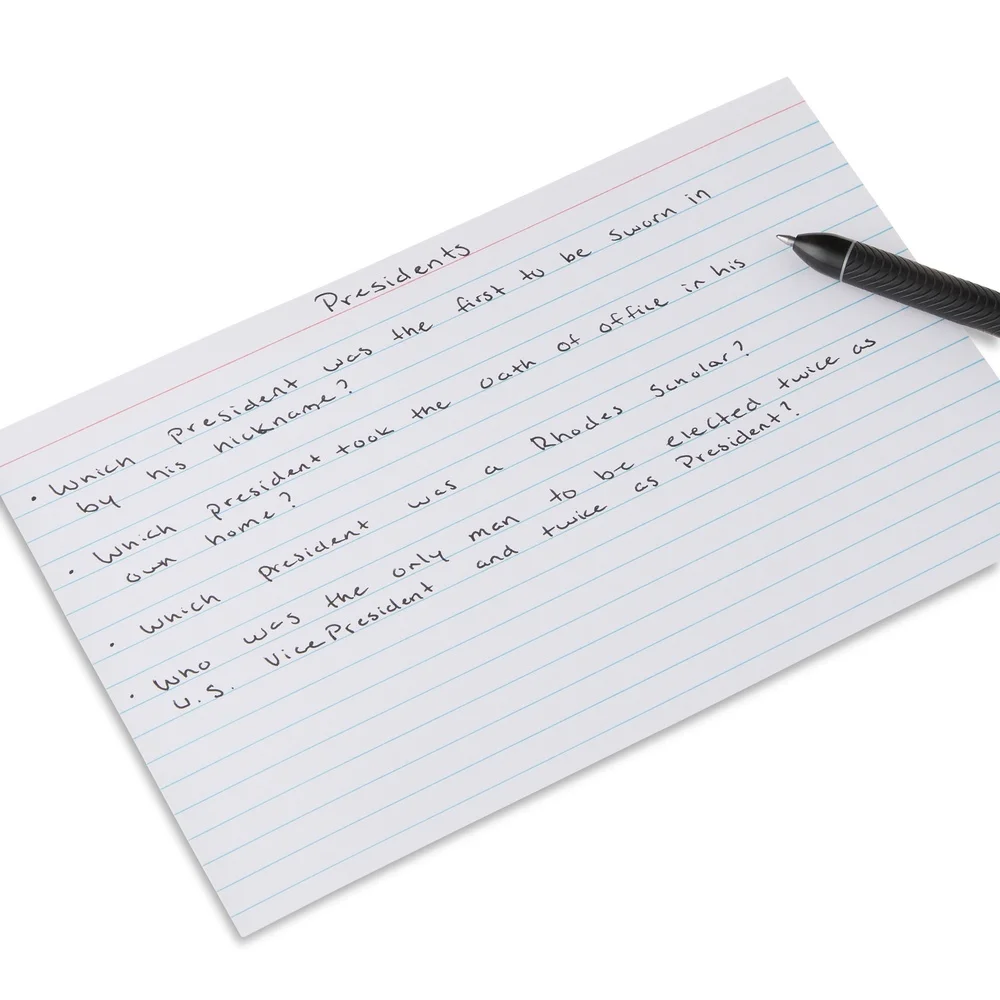 Presidents
• Which president was the first to be sworn in
by his nickname?
• Which president took the oath of office in his
own home?
• Which president was a Rhodes Scholar?
• Who was the only man to be elected twice as
U.S. Vice President and twice as President?